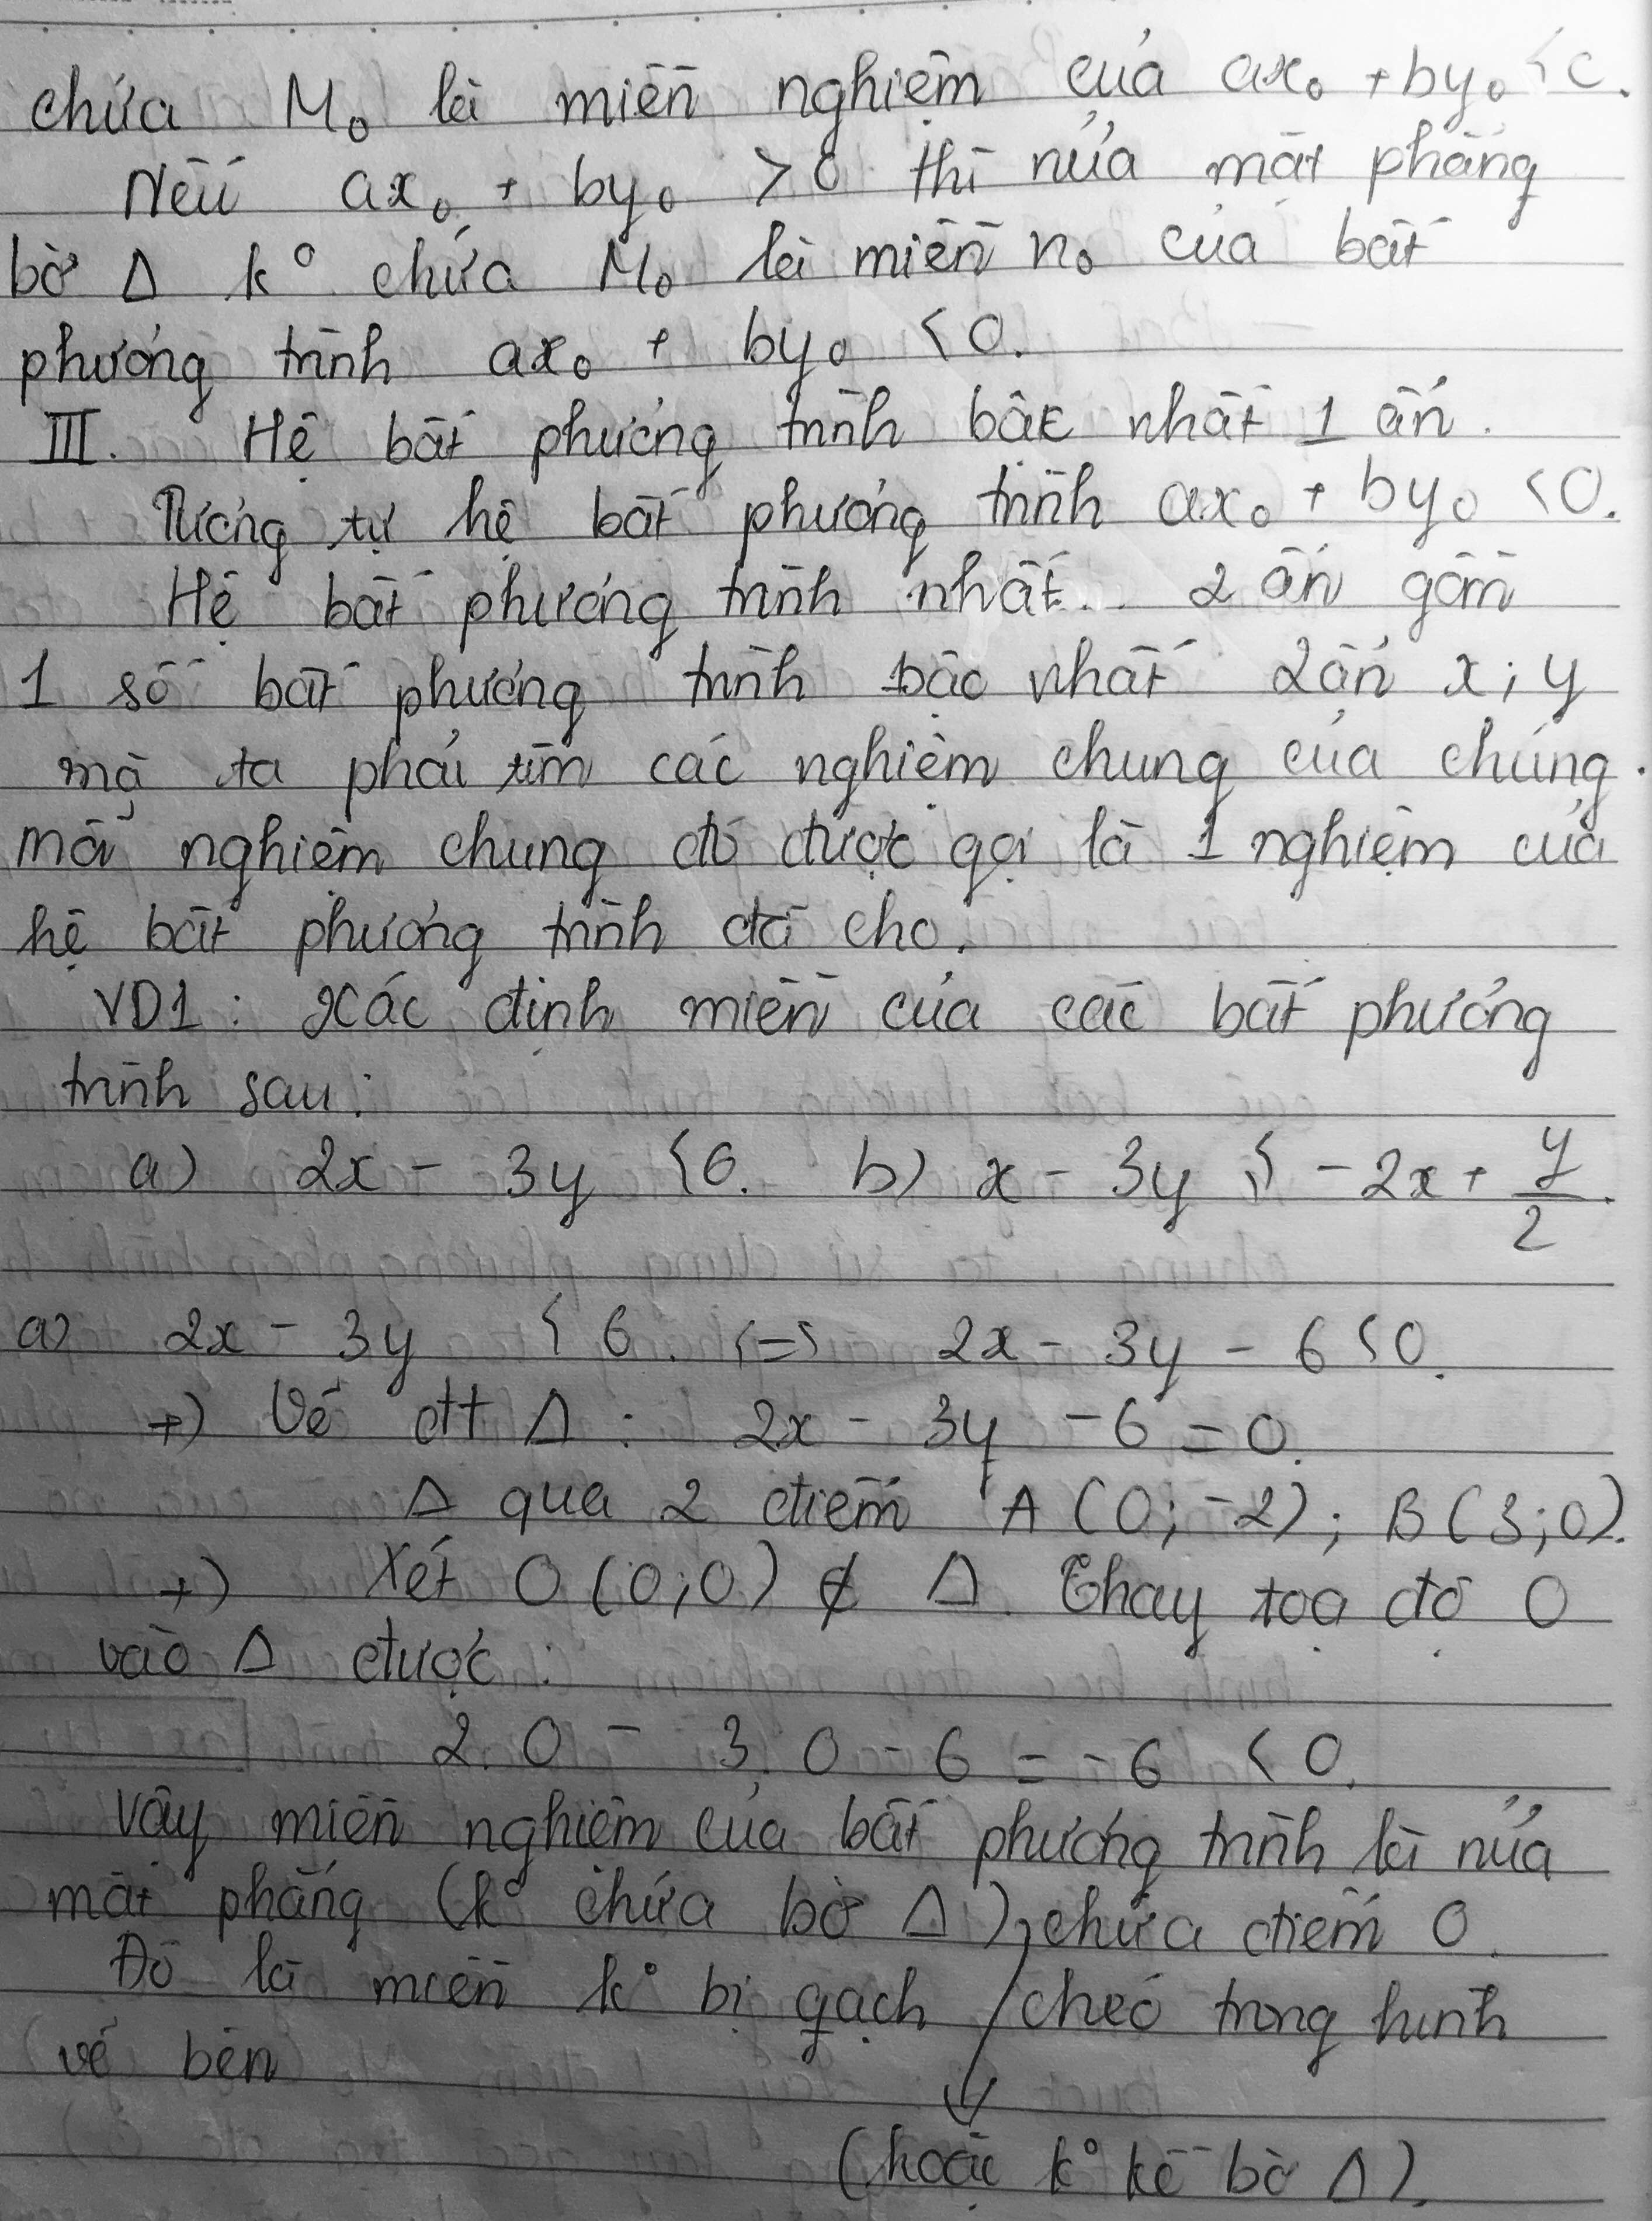 chứa M₀ là miền nghiệm của ax₀ + by₀ < c.
Nếu ax₀ + by₀ > 0 thì nửa mặt phẳng
bờ Δ k° chứa M₀ là miền n₀ của bất
phương trình ax₀ + by₀ < 0.
III. Hệ bất phương trình bậc nhất 1 ẩn.
Tương tự hệ bất phương trình ax₀ + by₀ < 0.
Hệ bất phương trình nhất.. 2 ẩn gồm
1 số bất phương trình bậc nhất 2 ẩn x; y
mà ta phải tìm các nghiệm chung của chúng.
mỗi nghiệm chung đó được gọi là 1 nghiệm của
hệ bất phương trình đã cho.
VD1: Xác định miền của các bất phương
trình sau:
a) 2x - 3y < 6. b) x - 3y < -2x + y/2.
a) 2x - 3y < 6. <=> 2x - 3y - 6 < 0.
+) Vẽ đtt Δ: 2x - 3y - 6 = 0.
Δ qua 2 điểm A (0; -2); B (3; 0).
+) Xét O (0; 0) ∉ Δ. Thay toạ độ O
vào Δ được:
2. 0 - 3. 0 - 6 = -6 < 0.
Vậy miền nghiệm của bất phương trình là nửa
mặt phẳng (k° chứa bờ Δ), chứa điểm O.
Đó là miền k° bị gạch chéo trong hình
vẽ bên
(hoặc k° kể bờ Δ).